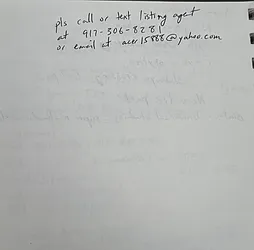 pls call or text listing agent
at 917-306-8281
or email at acer15888@yahoo.com